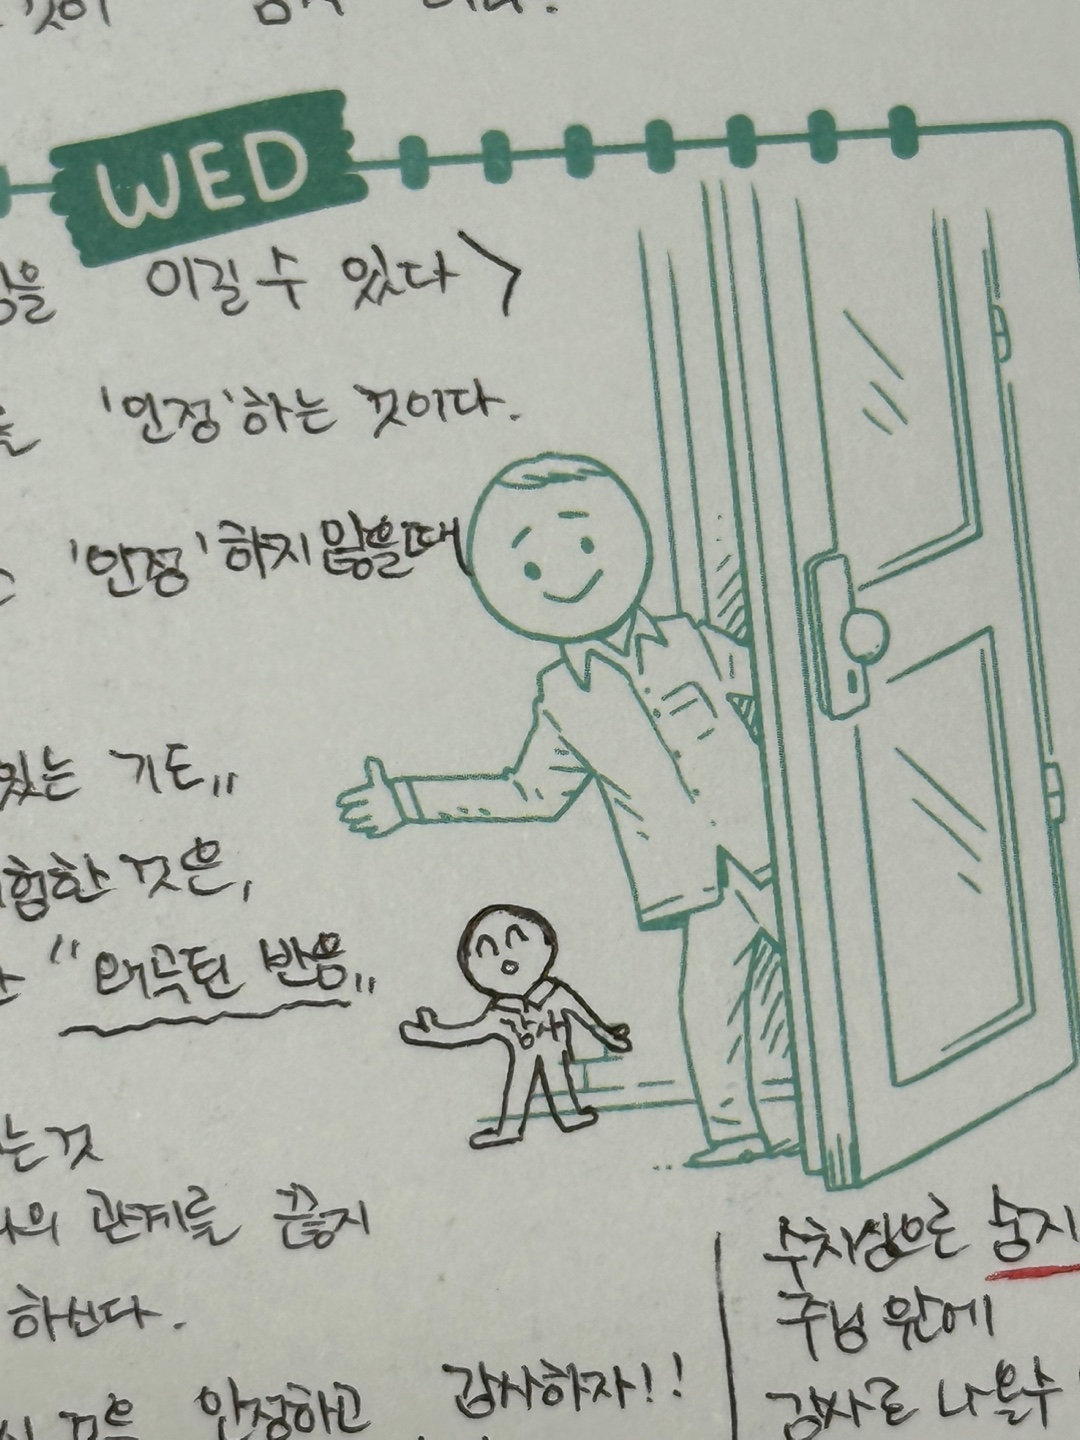 WED
이길 수 있다 >
'인정'하는 것이다.
'인정'하지 않을때
있는 기도"
험한 것은,
"왜곡된 반응"
감사
는것
나의 관계를 끊지
하신다.
수치심으로 숨지
주님 앞에
인정하고 감사하자!!
감사로 나올수